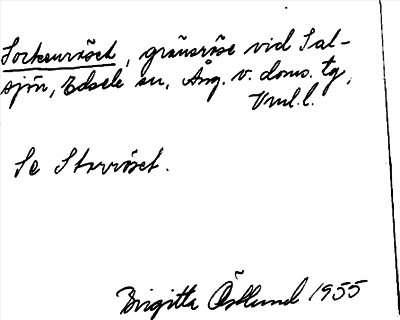 Sockenröset, gränsröse vid Sal-
sjön, Edsele sn, Ång. v. doms. tg,
Vml.l.
Se Storröset.
Birgitta Östlund 1955